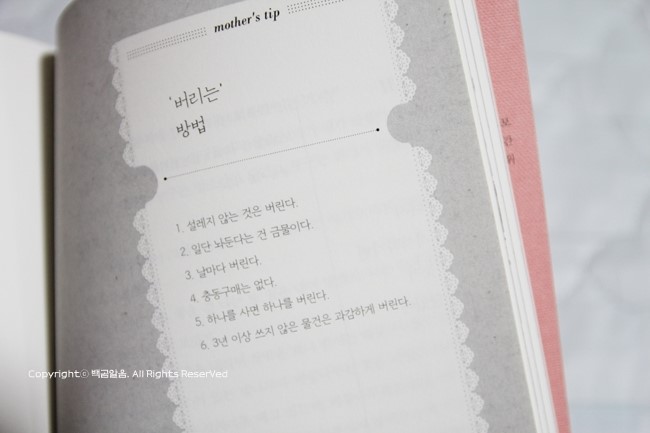 mother's tip
'버리는'
방법
1. 설레지 않는 것은 버린다.
2. 일단 놔둔다는 건 금물이다.
3. 날마다 버린다.
4. 충동구매는 없다.
5. 하나를 사면 하나를 버린다.
6. 3년 이상 쓰지 않은 물건은 과감하게 버린다.
보
간
Copyright ⓒ 백곰알음. All Rights ReserVed